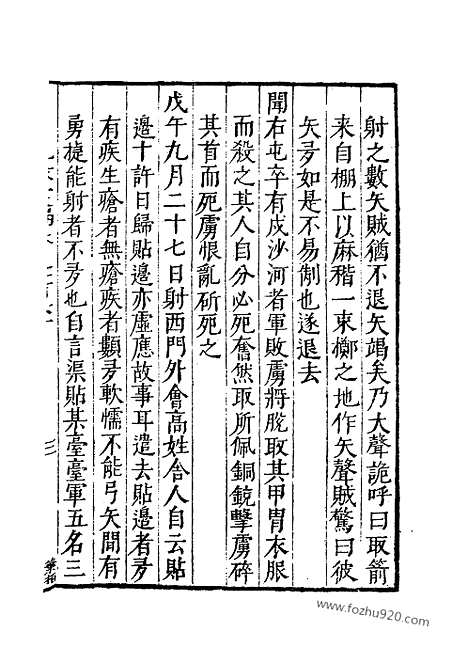 射之數矢賊猶不退矢竭矣乃大聲詭呼曰取箭
來自棚上以麻稭一束擲之地作矢聲賊驚曰彼
矢多如是不易制也遂退去
聞右屯卒有戍沙河者軍敗虜將脫取其甲冑衣服
而殺之其人自分必死奮然取所佩銅鏡擊虜碎
其首而死虜恨亂斫死之
戊午九月二十七日射西門外會高姓舍人自云貼
邊十許日歸貼邊亦虛應故事耳遣去貼邊者多
有疾生瘡者無瘡疾者顙多軟懦不能弓矢間有
勇㨗能射者不多也自言渠貼某臺臺軍五名三
www.fozhu920.com